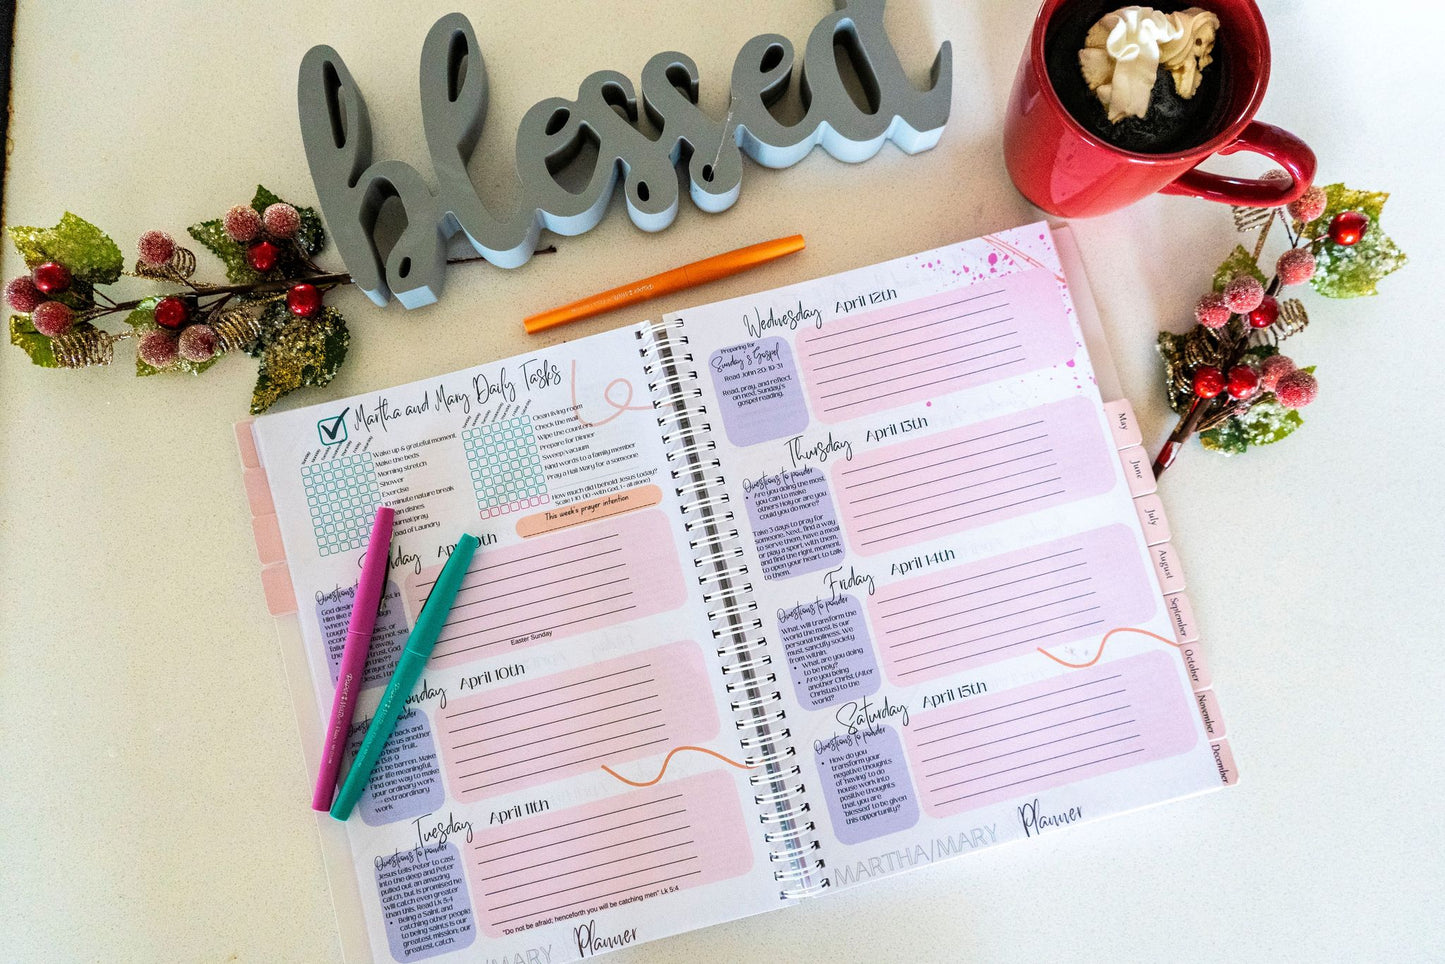 blessed
Martha and Mary Daily Tasks
Sunday Monday Tuesday Wednesday Thursday Friday Saturday
Wake up & grateful moment
Make the beds
Morning stretch
Shower
Exercise
10 minute nature break
dishes
Journal/pray
load of Laundry
Clean living room
Check the mail
Wipe the counters
Prepare for dinner
Sweep/vacuum
Kind words to a family member
Pray a Hail Mary for a someone
How much did I behold Jesus today?
Scale 1-10 (10 -with God, 1 - all alone)
This week's prayer intention
April 9th
Questions to ponder
God desires
Him like a
when w
tough
econo
may not see
failu
away
the
trust God
this??
prayer of
Jesus, I
Easter Sunday
Monday April 10th
ponder
back and
give us another
to bear fruit.
13:8-9
Don't be barren. Make
your life meaningful.
Find one way to make
your ordinary work
extraordinary
work
Tuesday April 11th
Questions to ponder
Jesus tells Peter to cast
into the deep and Peter
pulled out an amazing
catch, but is promised he
will catch even greater
than this. Read Lk 5:4
• Being a Saint, and
catching other people
to being saints is our
greatest mission; our
greatest catch.
"Do not be afraid; henceforth you will be catching men" Lk 5:4
MARY Planner
Wednesday April 12th
Preparing for
Sunday's Gospel
Read John 20: 10-31
Read, pray, and reflect
on next, Sunday's
gospel reading.
Thursday April 13th
Questions to ponder
• Are you doing the most
you can to make
others Holy or are you
could you do more?
Take 3 days to pray for
someone. Next, find a way
to serve them, have a meal
or play a sport, with them,
and find the right moment,
to open your heart, to talk
to them.
Friday April 14th
Questions to ponder
What, will transform the
world the most, is our
personal holiness. We
must, sanctify society
from within.
• What, are you doing
to be holy?
• Are you being
another Christ, (Alter
Christus) to the
world?
Saturday April 15th
Questions to ponder
• How do you
transform your
negative thoughts
of 'having' to do
house work into
positive thoughts
that, you are
'blessed' to be given
this opportunity?
MARTHA/MARY Planner
May
June
July
August
September
October
November
December